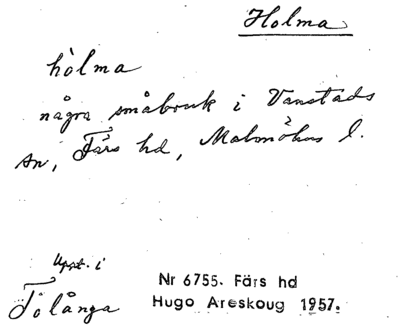 Holma
hòlma
några småbruk i Vanstads
sn, Färs hd, Malmöhus l.
Uppt. i
Tolånga
Nr 6755. Färs hd
Hugo Areskoug 1957.